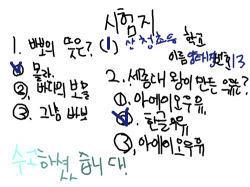 시험지
(1) 산청초등 학교
이름
1. 바보의 뜻은?
① 몰라.
②, 바다의 보물
③. 그냥 바보
2. 세종대왕이 만든 우유는?
①, 아에이오우유,
②. 한글우유
③, 아야어오우유
수고하셨습니다!